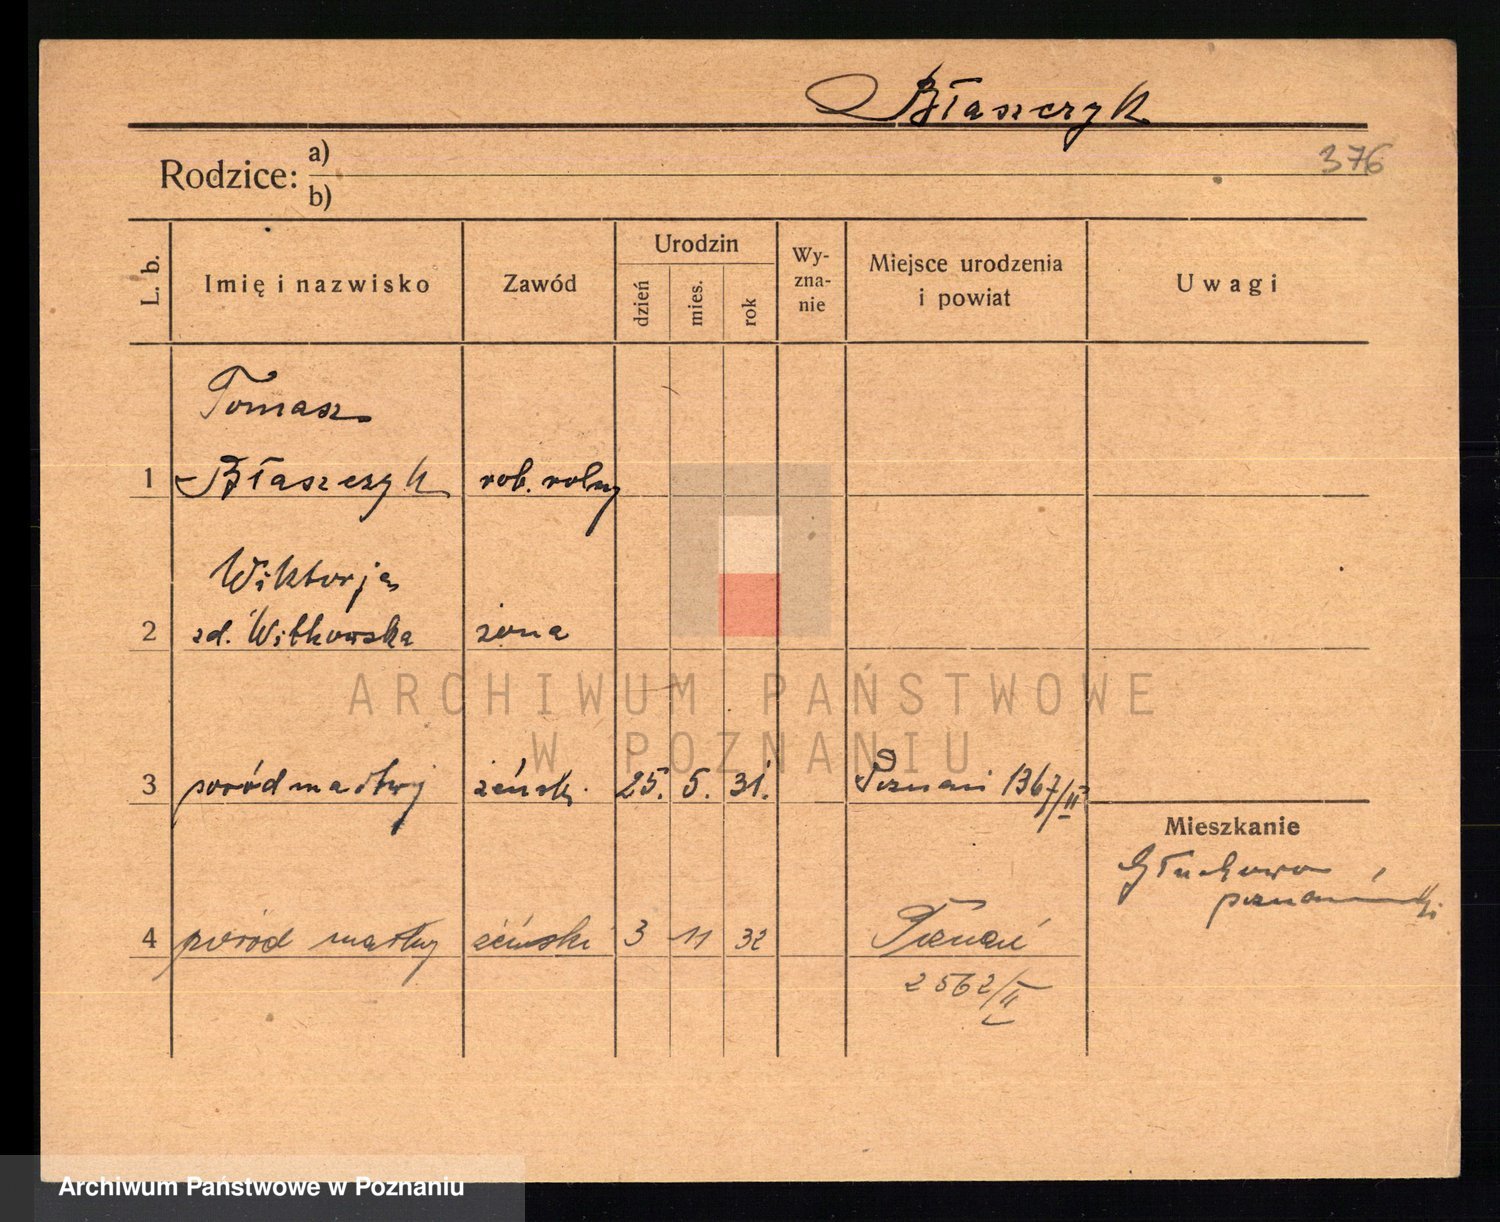 Błaszczyk
376
Rodzice: a)
b)
L. b.
Imię i nazwisko
Zawód
Urodzin
dzień
mies.
rok
Wy-
zna-
nie
Miejsce urodzenia
i powiat
Uwagi
Tomasz
1 Błaszczyk rob. rolny
Wiktorja
2 zd. Witkowska żona
ARCHIWUM PAŃSTWOWE
W POZNANIU
3 poród martwy żeńsk. 25. 5. 31. Poznań 1367/II
Mieszkanie
Głuchowo
poznański
4 poród martwy żeński 3 11 32 Poznań
2562/II
Archiwum Państwowe w Poznaniu